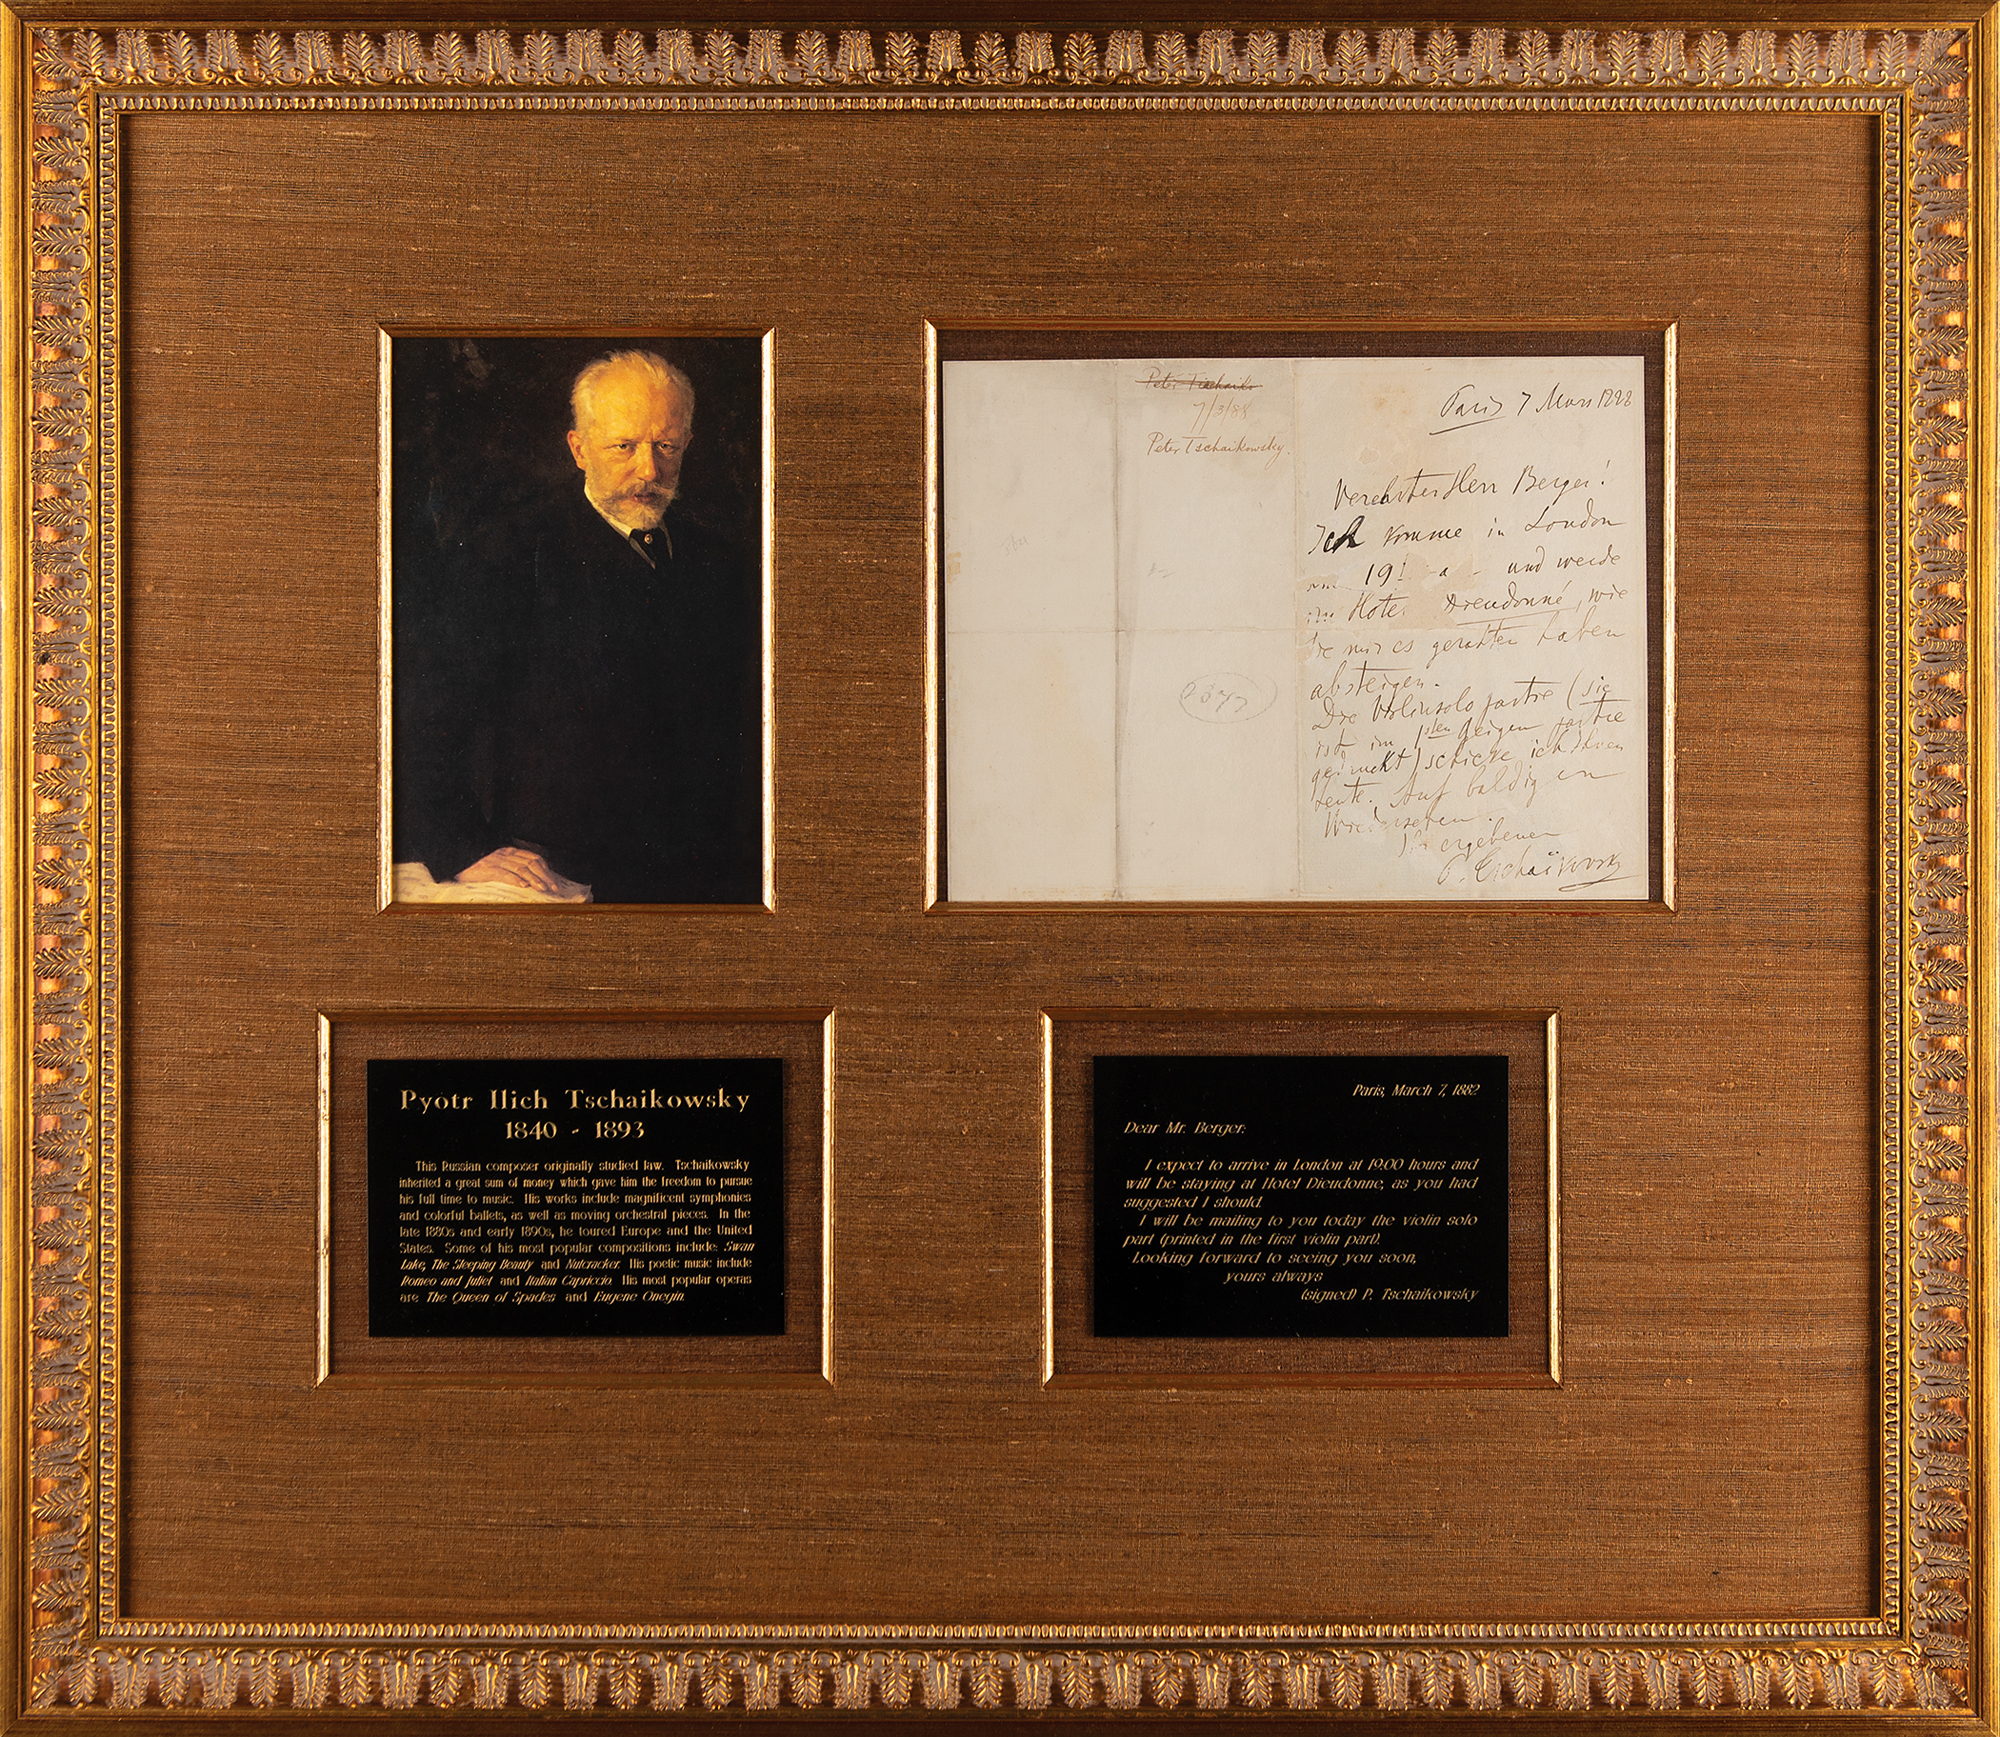 Peter Tschaik
7/3/88
Peter Tschaikowsky.
2677
Paris 7 Mars 1888
Verehrter Herr Berger!
Ich komme in London
am 19t und werde
im Hotel Dieudonné, wie
Sie mir es gerathen haben
absteigen.
Die Violinsolo partie (sie
ist im 1sten Geigen partie
gedruckt) schicke ich Ihnen
heute. Auf baldigen
Wiedersehen.
Ihr ergebener
P. Tschaïkovsky
Pyötr Ilich Tschaikowsky
1840 - 1893
This Russian composer originally studied law. Tschaikowsky
inherited a great sum of money which gave him the freedom to pursue
his full time to music. His works include magnificent symphonies
and colorful ballets, as well as moving orchestral pieces. In the
late 1880s and early 1890s, he toured Europe and the United
States. Some of his most popular compositions include: Swan
Lake, The Sleeping Beauty and Nutcracker. His poetic music include
Romeo and Juliet and Italian Capriccio. His most popular operas
are The Queen of Spades and Eugene Onegin.
Paris, March 7, 1882
Dear Mr. Berger:
I expect to arrive in London at 19:00 hours and
will be staying at Hotel Dieudonne, as you had
suggested I should.
I will be mailing to you today the violin solo
part (printed in the first violin part).
Looking forward to seeing you soon,
yours always
(signed) P. Tschaikowsky